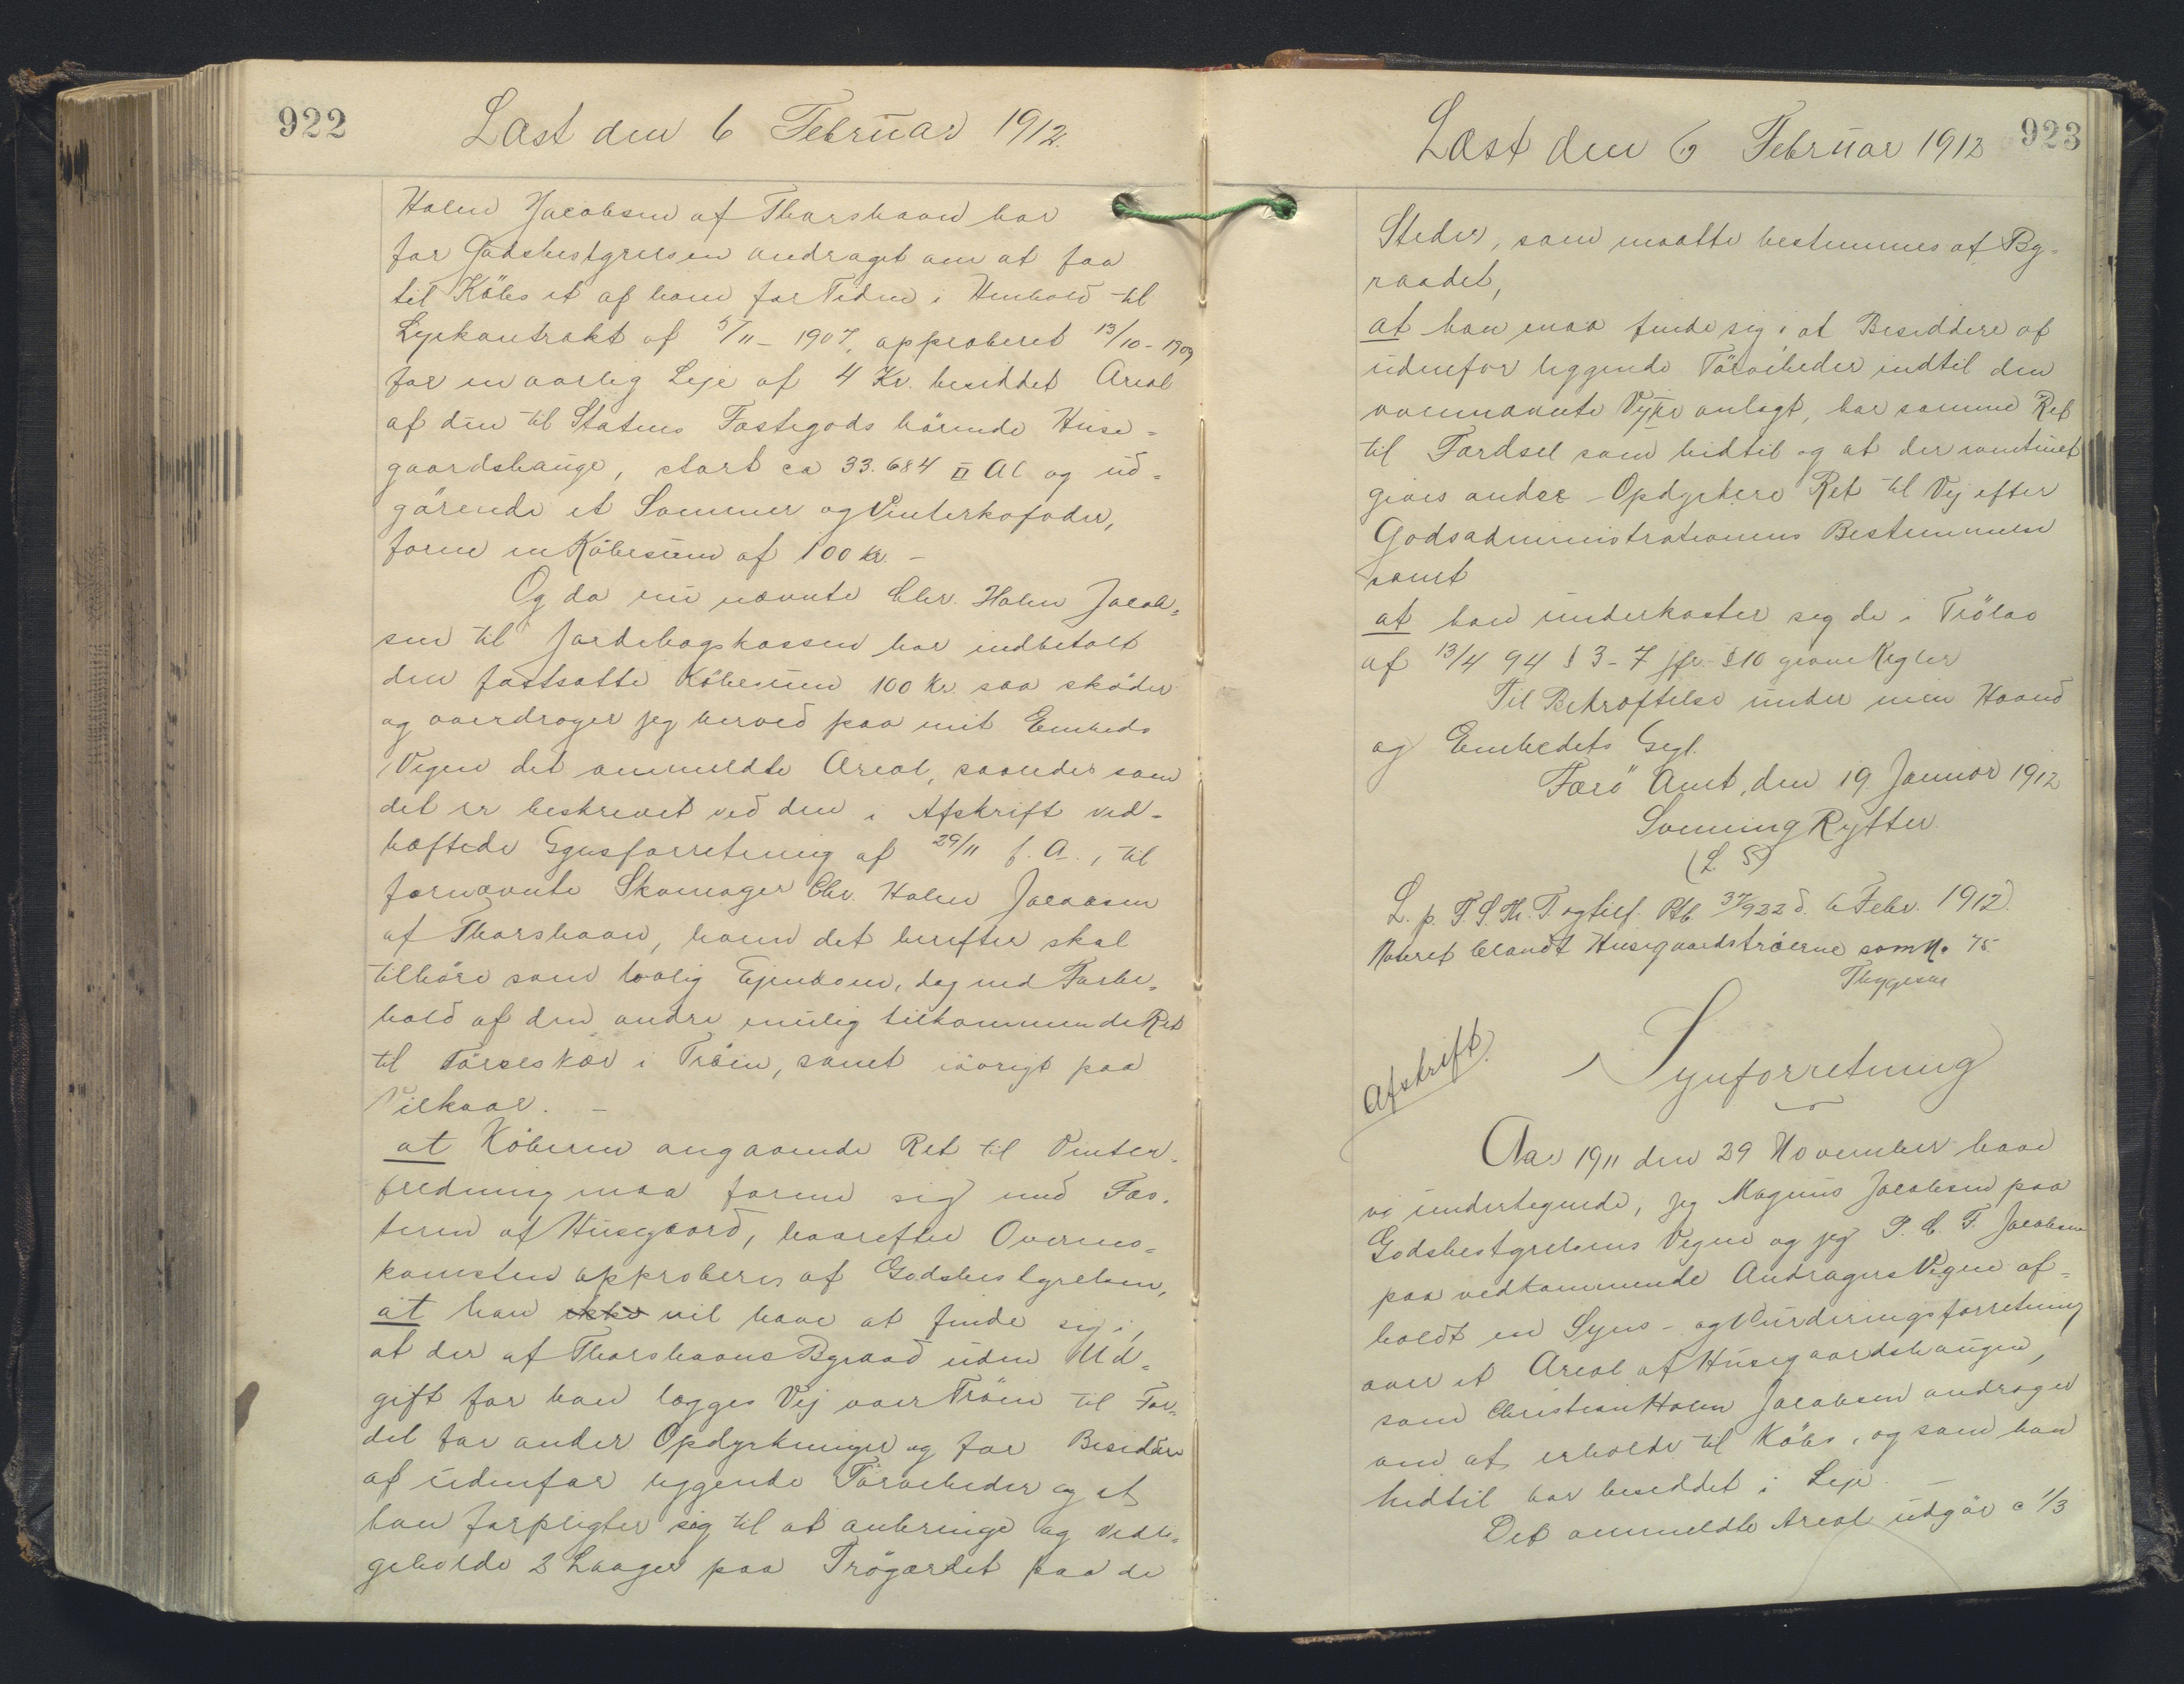 922
Læst den 6 Februar 1912.
Holm Jacobsen af Thorshavn har
for Godsbestyrelsen andraget om at faa
til Købs et af ham for Tiden i Henhold til
Lejekontrakt af 5/11 - 1907, approberet 13/10 - 1909
for en aarlig Leje af 4 Kr. besiddet Areal
af den til Statens Fæstegods hörende Huse=
gaardshauge, stort ca 33.684 □ Al og ud=
görende et Sommer og Vinterkofoder,
for en Købesum af 100 Kr. -
Og da nu nævnte Chr. Holm Jacob=
sen til Jordebogskassen har indbetalt
den fastsatte Købesum 100 Kr. saa sköder
og overdrager jeg herved paa mit Embeds
Vegne det ommeldte Areal, saaledes som
det er beskrevet ved den i Afskrift ved-
hæftede Synsforretning af 29/11 f. A., til
fornævnte Skomager Chr. Holm Jacobsen
af Thorshavn, hvem det herefter skal
tilhöre som lovlig Ejendom, dog med Forbe=
hold af den andre mulig tilkommende Ret
til Törveskær i Tröen, samt iövrigt paa
Vilkaar. -
at Köberen angaaende Ret til Vinter=
fredning maa forene sig med Fæs=
teren af Husegaard, hvorefter Overens=
komsten approberes af Godsbestyrelsen,
at han ikke vil have at finde sig i,
at der af Thorshavns Byraad uden Ud=
gift for ham lægges Vej over Tröen til For=
del for andre Opdyrkninger og for Besiddere
af udenfor liggende Törveheder og at
han forpligter sig til at anbringe og vedli=
geholde 2 Laager paa Trögærdet paa de
923
Læst den 6 Februar 1912
Steder, som maatte bestemmes af By=
raadet,
at han maa finde sig i at Besiddere af
udenfor liggende Törveheder indtil den
ovennævnte Vej er anlagt, har samme Ret
til Færdsel som hidtil og at der eventuelt
gives andre Opdyrkere Ret til Vej efter
Godsadministrationens Bestemmelse
samt
at han underkaster sig de i Trölov
af 13/4 94 § 3-7 jfr. § 10 givne Regler
Til Bekræftelse under min Haand
og Embedets Segl.
Færö Amt, den 19 Januar 1912
Svenning Rytter
(L. S)
L. p. F. S. Th. T. og tilf. Ptb. 37/922 d. 6 Febr. 1912.
Noteret blandt Husegaardströerne som No 75
Thygesen
Afskrift.
Synforretning
Aar 1911 den 29 November have
vi undertegnede, jeg Magnus Jacobsen paa
Godsbestyrelsens Vegne og jeg P. C. F. Jacobsen
paa vedkommende Andragers Vegne af=
holdt en Syns- og Vurderingsforretning
over et Areal af Husegaardshaugen,
som Christian Holm Jacobsen andrager
om at erholde til Köbs, og som han
hidtil har besiddet i Leje. -
Det ommeldte Areal udgör c 1/3